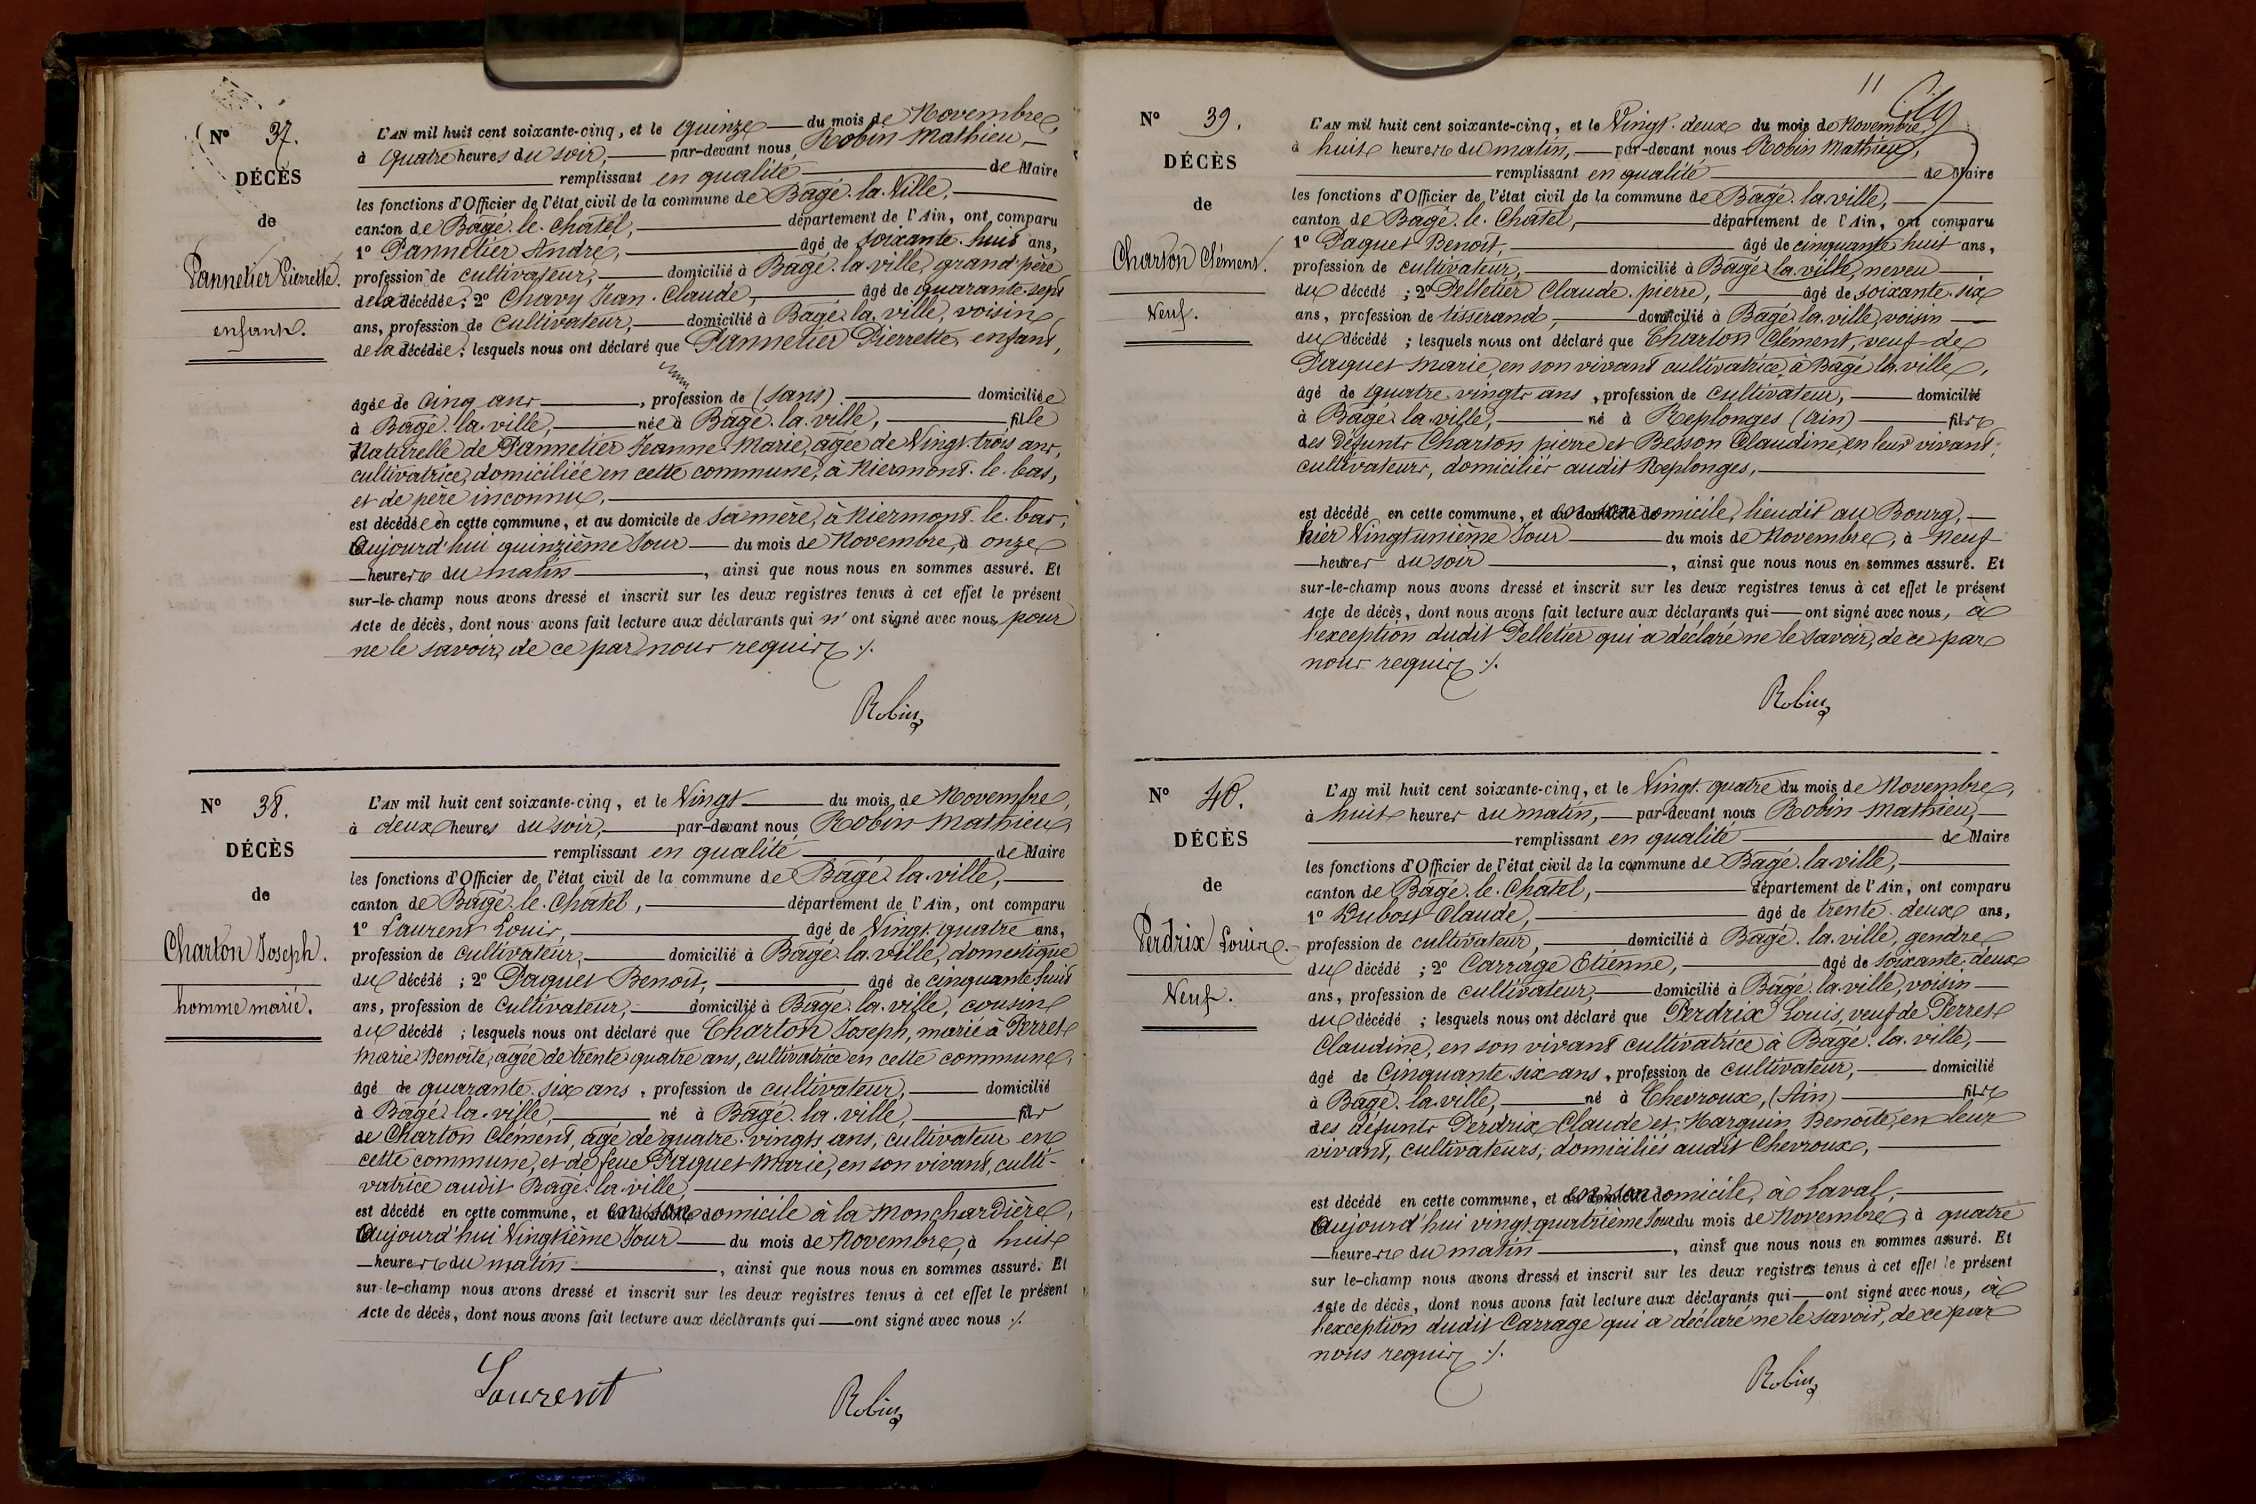 N° 37.
DÉCÈS
de
Pannetier Pierrette.
enfant.
L'AN mil huit cent soixante-cinq, et le quinze du mois de Novembre,
à quatre heures du soir, par-devant nous, Robin Mathieu,
remplissant en qualité de Maire
les fonctions d'Officier de l'état civil de la commune de Bâgé-la-Ville,
canton de Bâgé-le-Châtel, département de l'Ain, ont comparu
1° Pannetier André, âgé de soixante-huit ans,
profession de cultivateur, domicilié à Bâgé-la-ville, grand père
de la décédée; 2° Chavy Jean-Claude, âgé de quarante-sept
ans, profession de Cultivateur, domicilié à Bâgé-la-ville, voisin
de la décédée; lesquels nous ont déclaré que Pannetier Pierrette, enfant,
âgée de cinq ans, profession de (sans) domiciliée
à Bâgé-la-ville, née à Bâgé-la-ville, fille
Naturelle de Pannetier Jeanne-Marie, agée de Vingt-trois ans,
cultivatrice, domiciliée en cette commune, à Niermont-le-bas,
et de père inconnu,
est décédée en cette commune, et au domicile de sa mère, à Niermont-le-bas,
Aujourd'hui quinzième Jour du mois de Novembre, à onze
heures du matin, ainsi que nous nous en sommes assuré. Et
sur-le-champ nous avons dressé et inscrit sur les deux registres tenus à cet effet le présent
Acte de décès, dont nous avons fait lecture aux déclarants qui n'ont signé avec nous, pour
ne le savoir, de ce par nous requis ./.
Robin
N° 38.
DÉCÈS
de
Charton Joseph.
homme marié.
L'AN mil huit cent soixante-cinq, et le Vingt du mois de Novembre,
à deux heures du soir, par-devant nous, Robin Mathieu,
remplissant en qualité de Maire
les fonctions d'Officier de l'état civil de la commune de Bâgé-la-ville,
canton de Bâgé-le-Châtel, département de l'Ain, ont comparu
1° Laurent Louis, âgé de Vingt-quatre ans,
profession de cultivateur, domicilié à Bâgé-la-ville, domestique
du décédé; 2° Paquet Benoît, âgé de cinquante-huit
ans, profession de Cultivateur, domicilié à Bâgé-la-ville, cousin
du décédé; lesquels nous ont déclaré que Charton Joseph, marié à Perret
Marie-Benoite, agée de trente-quatre ans, cultivatrice en cette commune,
âgé de quarante-six ans, profession de cultivateur, domicilié
à Bâgé-la-ville, né à Bâgé-la-ville, fils
de Charton Clément, âgé de quatre-vingts ans, cultivateur en
cette commune, et de feue Paquet Marie, en son vivant, culti-
vatrice audit Bâgé-la-ville,
est décédé en cette commune, et en son domicile à la Monchardière,
Aujourd'hui Vingtième Jour du mois de Novembre, à huit
heures du matin, ainsi que nous nous en sommes assuré. Et
sur-le-champ nous avons dressé et inscrit sur les deux registres tenus à cet effet le présent
Acte de décès, dont nous avons fait lecture aux déclarants qui ont signé avec nous ./.
Laurent Robin
11
N° 39.
DÉCÈS
de
Charton Clément.
Veuf.
L'AN mil huit cent soixante-cinq, et le Vingt-deux du mois de Novembre,
à huit heures du matin, par-devant nous Robin Mathieu,
remplissant en qualité de Maire
les fonctions d'Officier de l'état civil de la commune de Bâgé-la-ville,
canton de Bâgé-le-Châtel, département de l'Ain, ont comparu
1° Paquet Benoît, âgé de cinquante-huit ans,
profession de cultivateur, domicilié à Bâgé-la-ville, neveu
du décédé; 2° Pelletier Claude-pierre, âgé de soixante-six
ans, profession de tisserand, domicilié à Bâgé-la-ville, voisin
du décédé; lesquels nous ont déclaré que Charton Clément, veuf de
Paquet Marie, en son vivant cultivatrice, à Bâgé-la-ville,
âgé de quatre-vingts ans, profession de cultivateur, domicilié
à Bâgé-la-ville, né à Replonges (Ain) fils
des Défunts Charton pierre et Besson Claudine, en leur vivant,
cultivateurs, domiciliés audit Replonges,
est décédé en cette commune, et en son domicile, lieudit au Bourg,
hier Vingt unième Jour du mois de Novembre, à Neuf
heures du soir, ainsi que nous nous en sommes assuré. Et
sur-le-champ nous avons dressé et inscrit sur les deux registres tenus à cet effet le présent
Acte de décès, dont nous avons fait lecture aux déclarants qui ont signé avec nous, à
l'exception dudit Pelletier qui a déclaré ne le savoir, de ce par
nous requis ./.
Robin
N° 40.
DÉCÈS
de
Perdrix Louis.
Veuf.
L'AN mil huit cent soixante-cinq, et le Vingt-quatre du mois de Novembre,
à huit heures du matin, par-devant nous Robin Mathieu,
remplissant en qualité de Maire
les fonctions d'Officier de l'état civil de la commune de Bâgé-la-ville,
canton de Bâgé-le-Châtel, département de l'Ain, ont comparu
1° Dubost Claude, âgé de trente-deux ans,
profession de cultivateur, domicilié à Bâgé-la-ville, gendre
du décédé; 2° Carrage Etienne, âgé de soixante-deux
ans, profession de cultivateur, domicilié à Bâgé-la-ville, voisin
du décédé; lesquels nous ont déclaré que Perdrix Louis, veuf de Perret
Claudine, en son vivant cultivatrice à Bâgé-la-ville,
âgé de Cinquante-six ans, profession de cultivateur, domicilié
à Bâgé-la-ville, né à Chevroux, (Ain) fils
des défunts Perdrix Claude et Marguin Benoite, en leur
vivant, cultivateurs, domiciliés audit Chevroux,
est décédé en cette commune, et en son domicile, à Laval,
Aujourd'hui vingt-quatrième Jour du mois de Novembre, à quatre
heures du matin, ainsi que nous nous en sommes assuré. Et
sur le-champ nous avons dressé et inscrit sur les deux registres tenus à cet effet le présent
Acte de décès, dont nous avons fait lecture aux déclarants qui ont signé avec nous, à
l'exception dudit Carrage qui a déclaré ne le savoir, de ce par
nous requis ./.
Robin